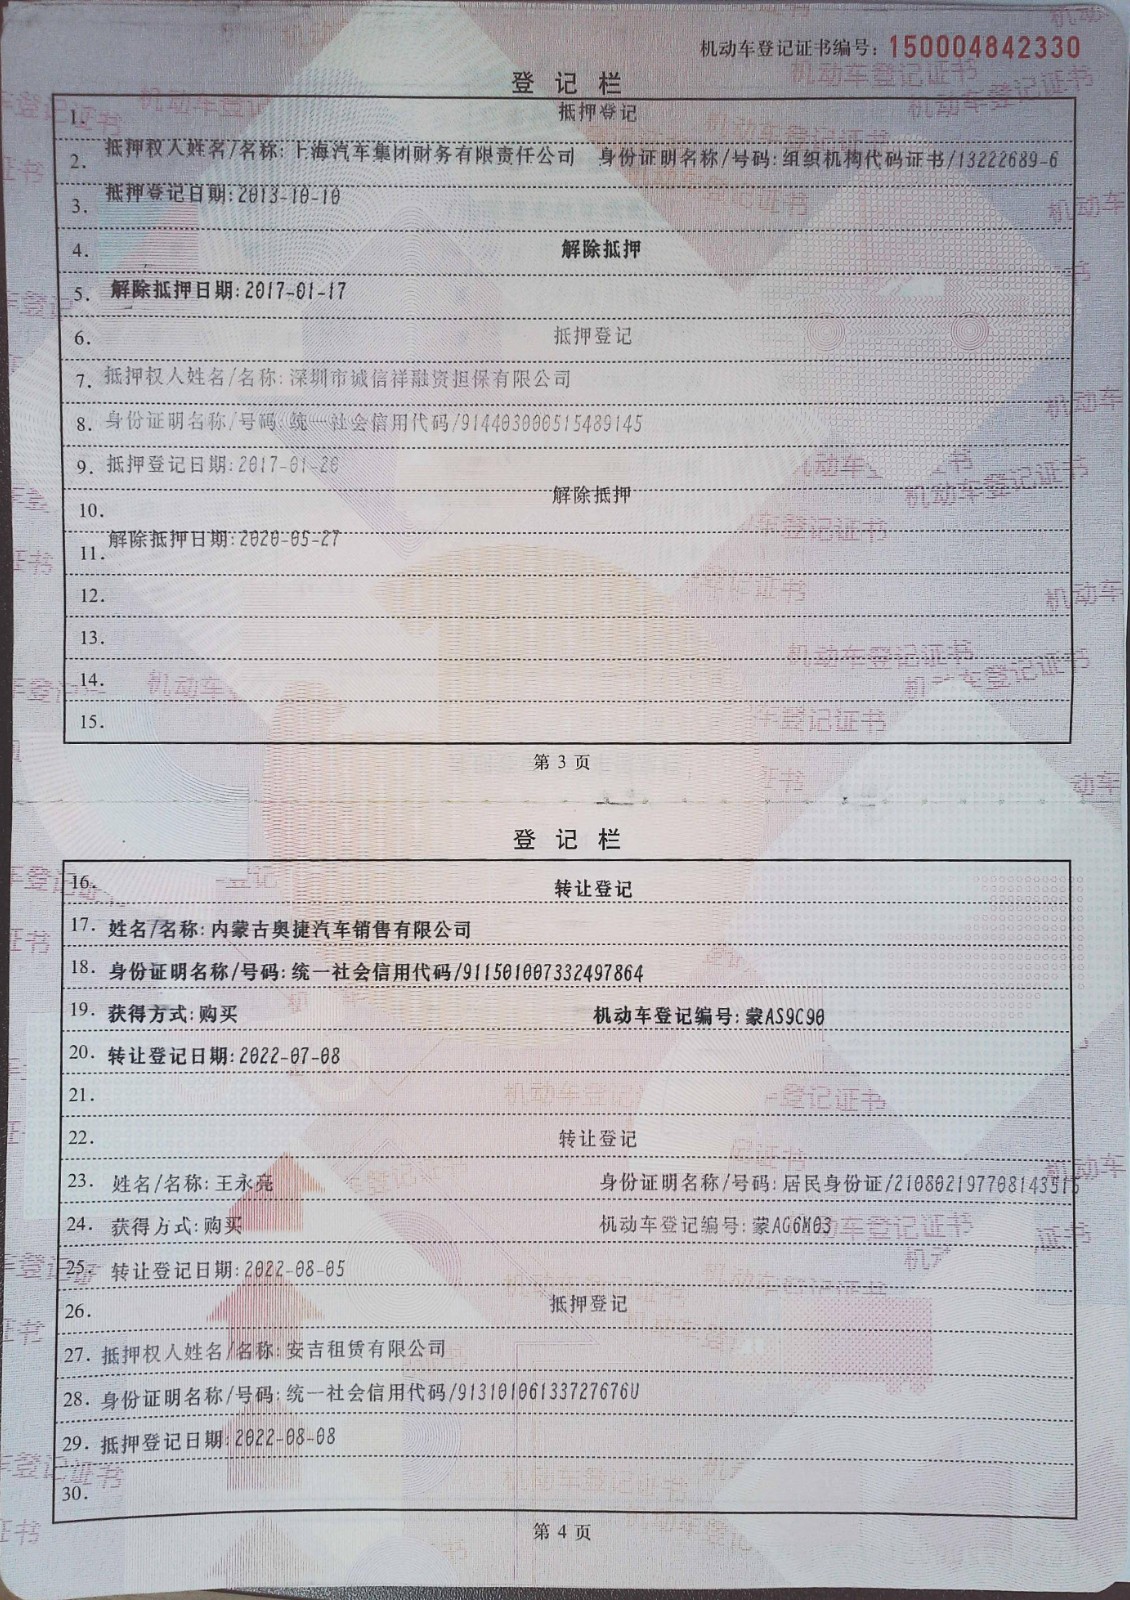 机动车登记证书编号：150004842330
登记栏
1. 抵押登记
2. 抵押权人姓名/名称:上海汽车集团财务有限责任公司 身份证明名称/号码:组织机构代码证书/13222689-6
3. 抵押登记日期:2013-10-10
4. 解除抵押
5. 解除抵押日期:2017-01-17
6. 抵押登记
7. 抵押权人姓名/名称:深圳市诚信祥融资担保有限公司
8. 身份证明名称/号码:统一社会信用代码/914403000515489145
9. 抵押登记日期:2017-01-20
10. 解除抵押
11. 解除抵押日期:2020-05-27
12.
13.
14.
15.
第 3 页
登记栏
16. 转让登记
17. 姓名/名称:内蒙古奥捷汽车销售有限公司
18. 身份证明名称/号码:统一社会信用代码/911501007332497864
19. 获得方式:购买 机动车登记编号:蒙AS9C90
20. 转让登记日期:2022-07-08
21.
22. 转让登记
23. 姓名/名称:王永亮 身份证明名称/号码:居民身份证/210802197708143515
24. 获得方式:购买 机动车登记编号:蒙AG6M03
25. 转让登记日期:2022-08-05
26. 抵押登记
27. 抵押权人姓名/名称:安吉租赁有限公司
28. 身份证明名称/号码:统一社会信用代码/91310106133727676U
29. 抵押登记日期:2022-08-08
30.
第 4 页